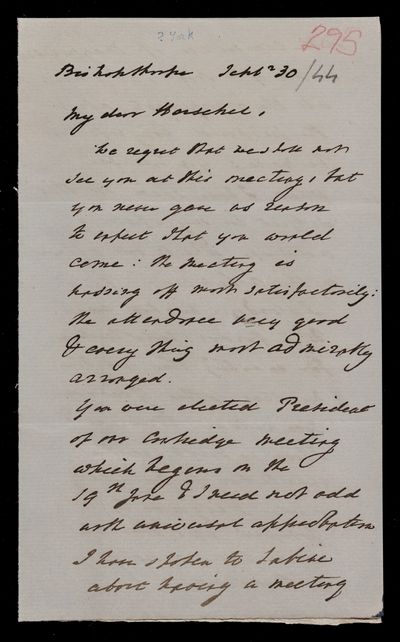 ? York
295
Bishopthorpe Septr 30/44
My dear Herschel,
We regret that we shall not
see you at this meeting, but
you never gave us reason
to expect that you would
come: the meeting is
passing off most satisfactorily:
the attendance very good
& every thing most admirably
arranged.
You were elected President
of our Cambridge meeting
which begins on the
19th June & I need not add
with universal approbation
I have spoken to Sabine
about having a meeting